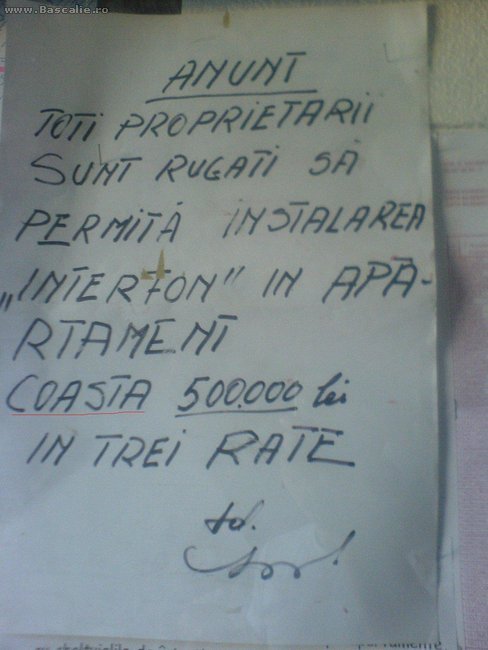 www.Bascalie.ro
ANUNT
TOTI PROPRIETARII
SUNT RUGATI SĂ
PERMITĂ INSTALAREA
„INTERFON" IN APĂ-
RTAMENT
COASTA 500.000 lei
IN TREI RATE